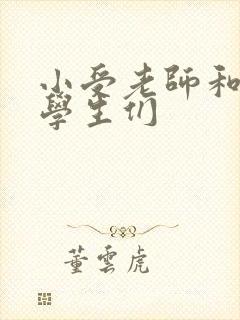 小受老師和
學生们
董雲虎